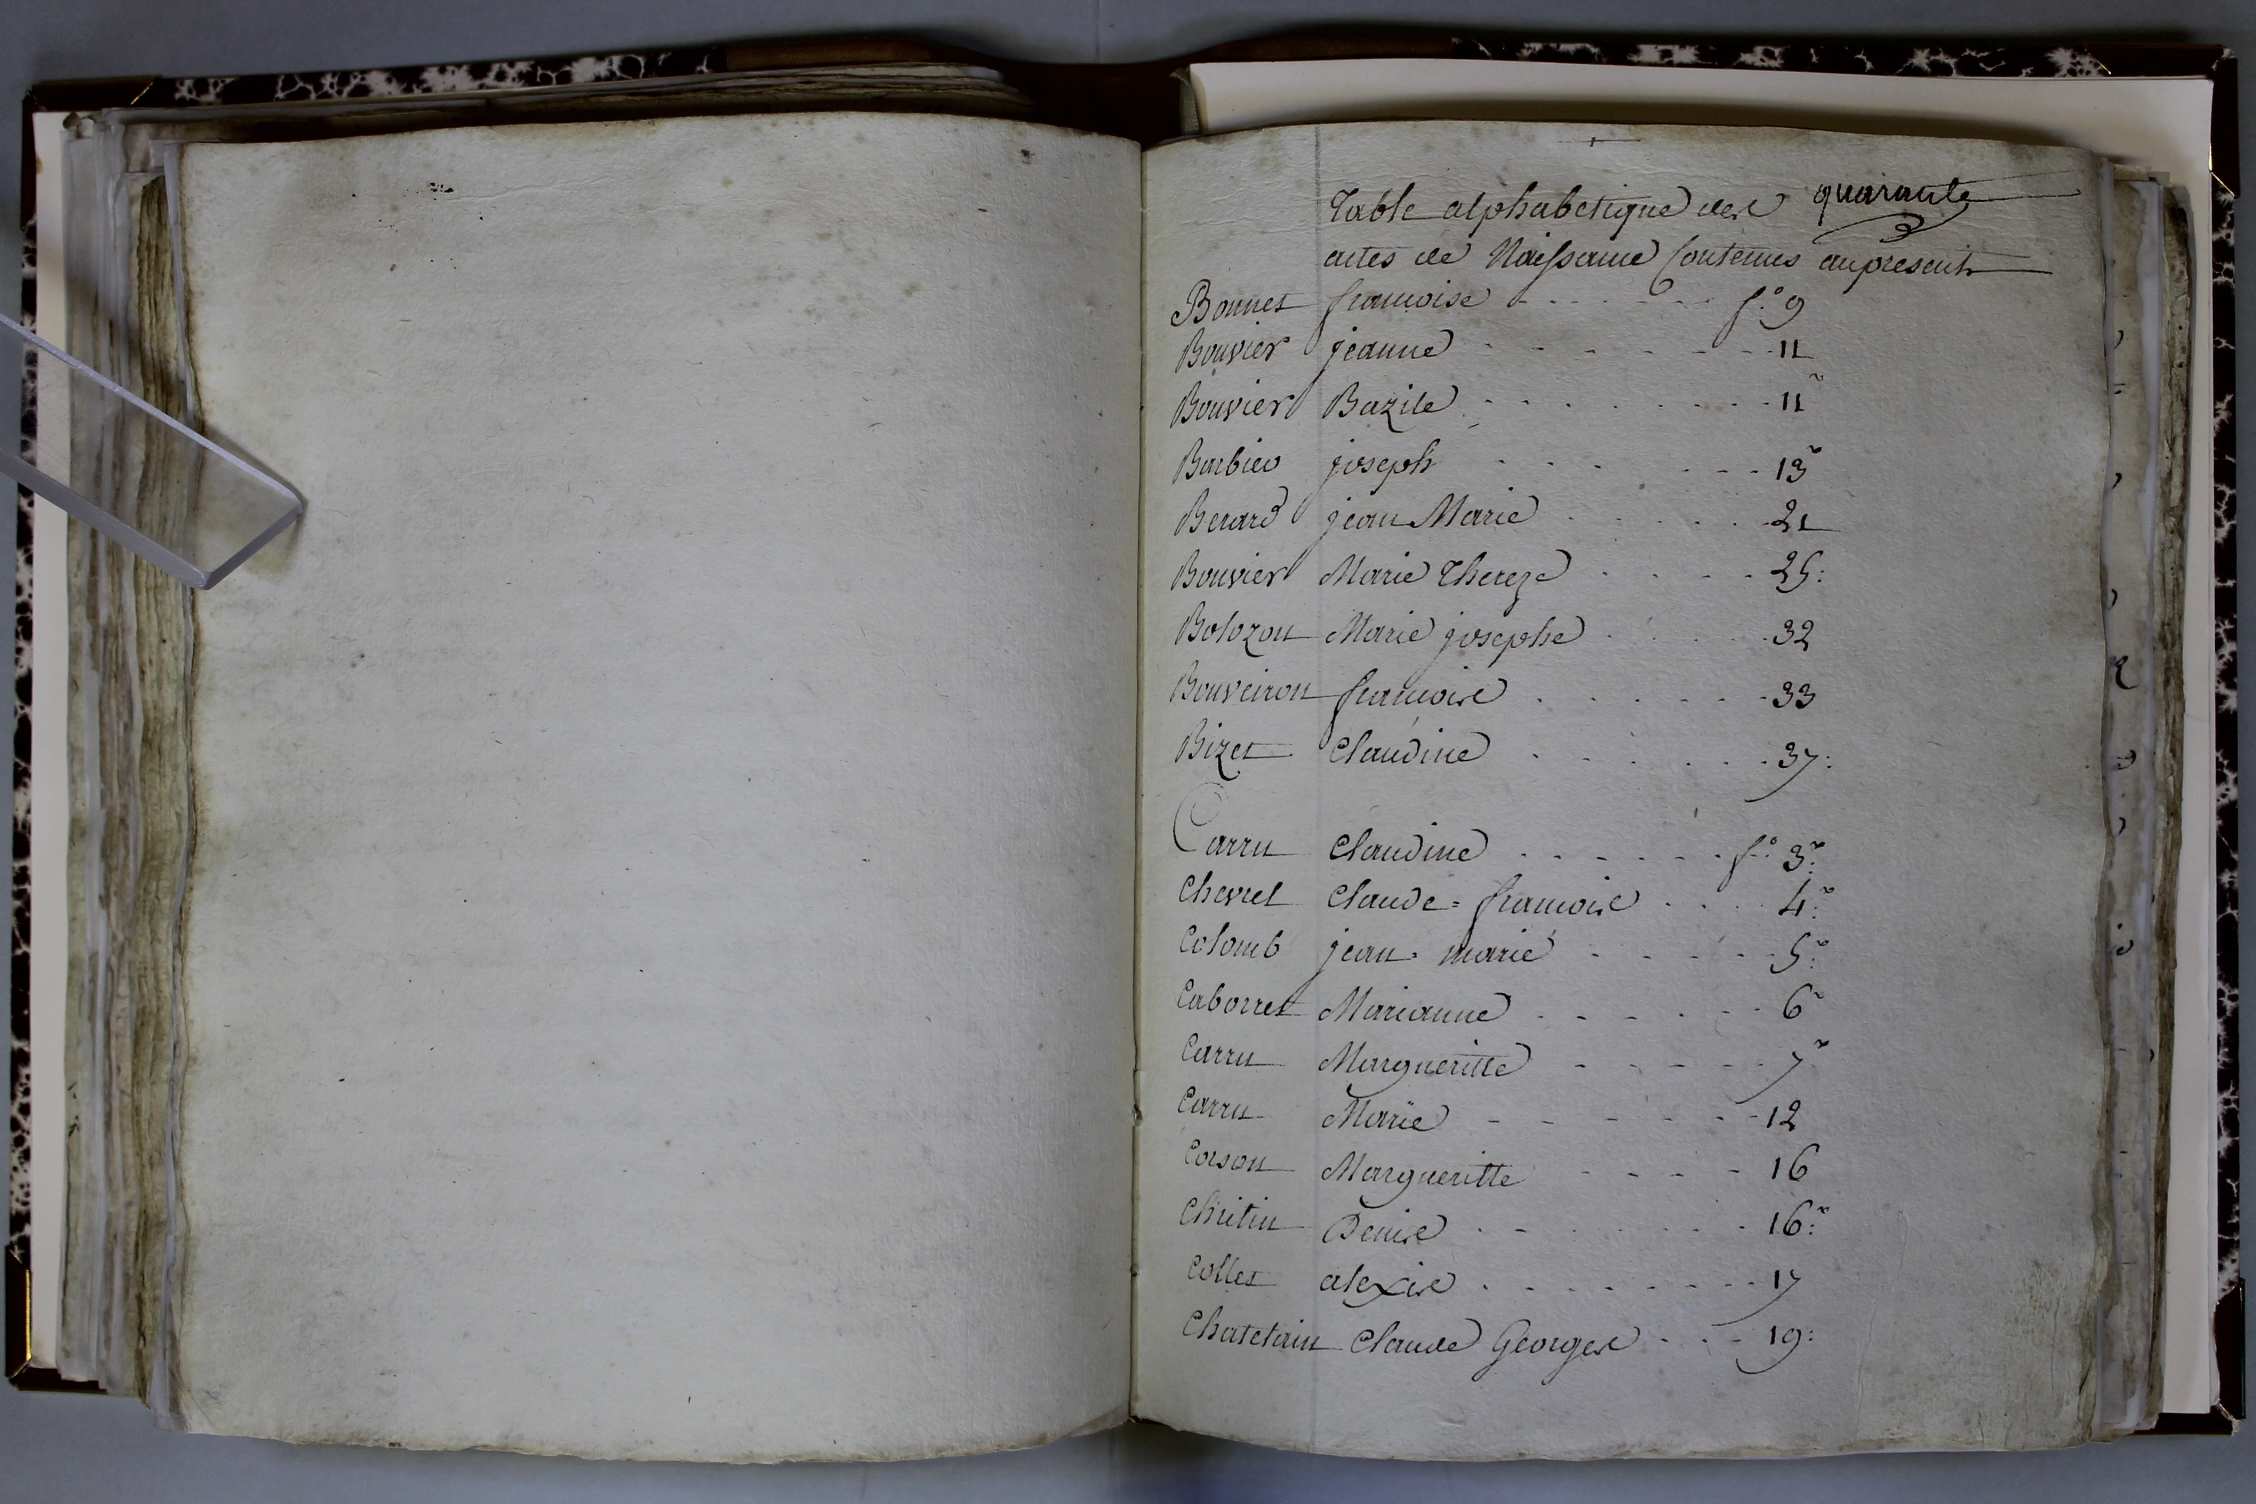 quarante
Table alphabetique des
actes de Naissance Contenus au present
Bonnet françoise - - - - - f.° 9
Bouvier jeanne - - - - - - 11
Bouvier Bazile - - - - - - 11 v
Barbier joseph - - - - - - 13 v
Berard jean Marie - - - - - 21
Bouvier Marie Thereze - - - - 25:
Bolozon Marie josephe - - - - 32
Bouveiron françoise - - - - - 33
Bizet Claudine - - - - - - 37:
Carru Claudine - - - - - - f.° 3 v:
Chevrel Claude = françoise - - - 4 v:
Colomb jean-marie - - - - - 5 v:
Caborret Marianne - - - - - 6 v
Carru Margueritte - - - - - 7 v
Carru Marie - - - - - - 12
Corson Margueritte - - - - 16
Chritin Denise - - - - - - 16 v:
Collet alexis - - - - - - 17
Chatelain Claude Georges - - - 19: